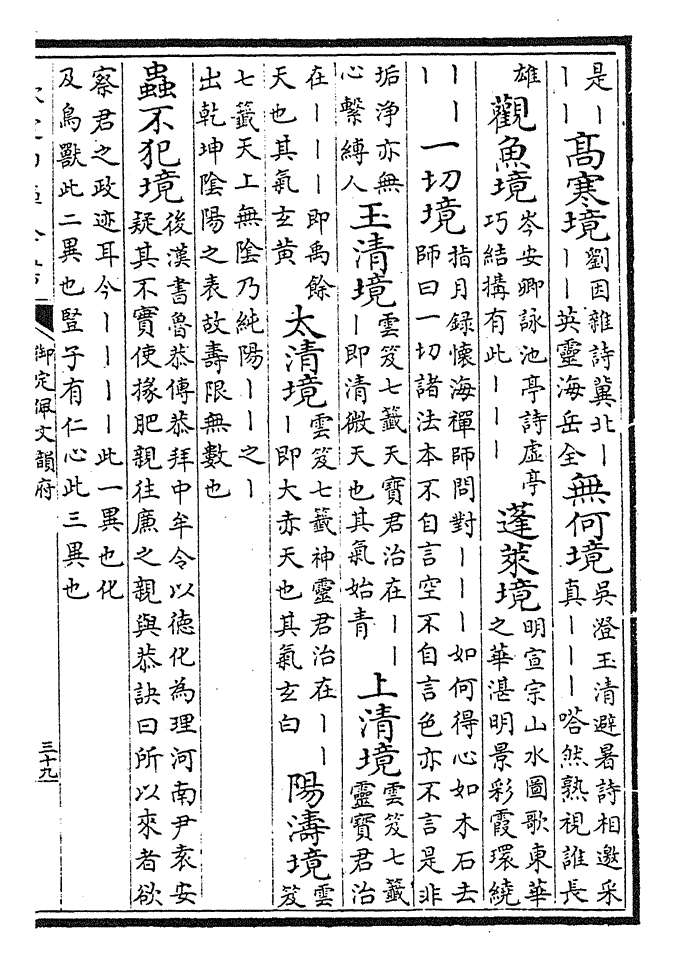 是丨丨丨高寒境劉因雜詩冀北丨丨丨英靈海岳全無何境吳澄玉清避暑詩相邀采真丨丨丨嗒然熟視誰長
雄觀魚境岑安卿詠池亭詩虛亭巧結搆有此丨丨丨蓬萊境明宣宗山水圖歌東華之華湛明景彩霞環繞
丨丨丨一切境指月錄懷海禪師問對丨丨丨如何得心如木石去師曰一切諸法本不自言空不自言色亦不言是非
垢淨亦無心繫縛人玉清境雲笈七籤天寶君治在丨丨丨即清微天也其氣始青上清境雲笈七籤靈寶君治
在丨丨丨即禹餘天也其氣玄黃太清境雲笈七籤神靈君治在丨丨丨即大赤天也其氣玄白陽濤境雲笈
七籤天上無陰乃純陽丨丨之丨出乾坤陰陽之表故壽限無數也
蟲不犯境後漢書魯恭傳恭拜中牟令以德化為理河南尹袁安疑其不實使掾肥親往廉之親與恭訣曰所以來者欲
察君之政迹耳今丨丨丨丨此一異也化及鳥獸此二異也豎子有仁心此三異也
御定佩文韻府
三十九